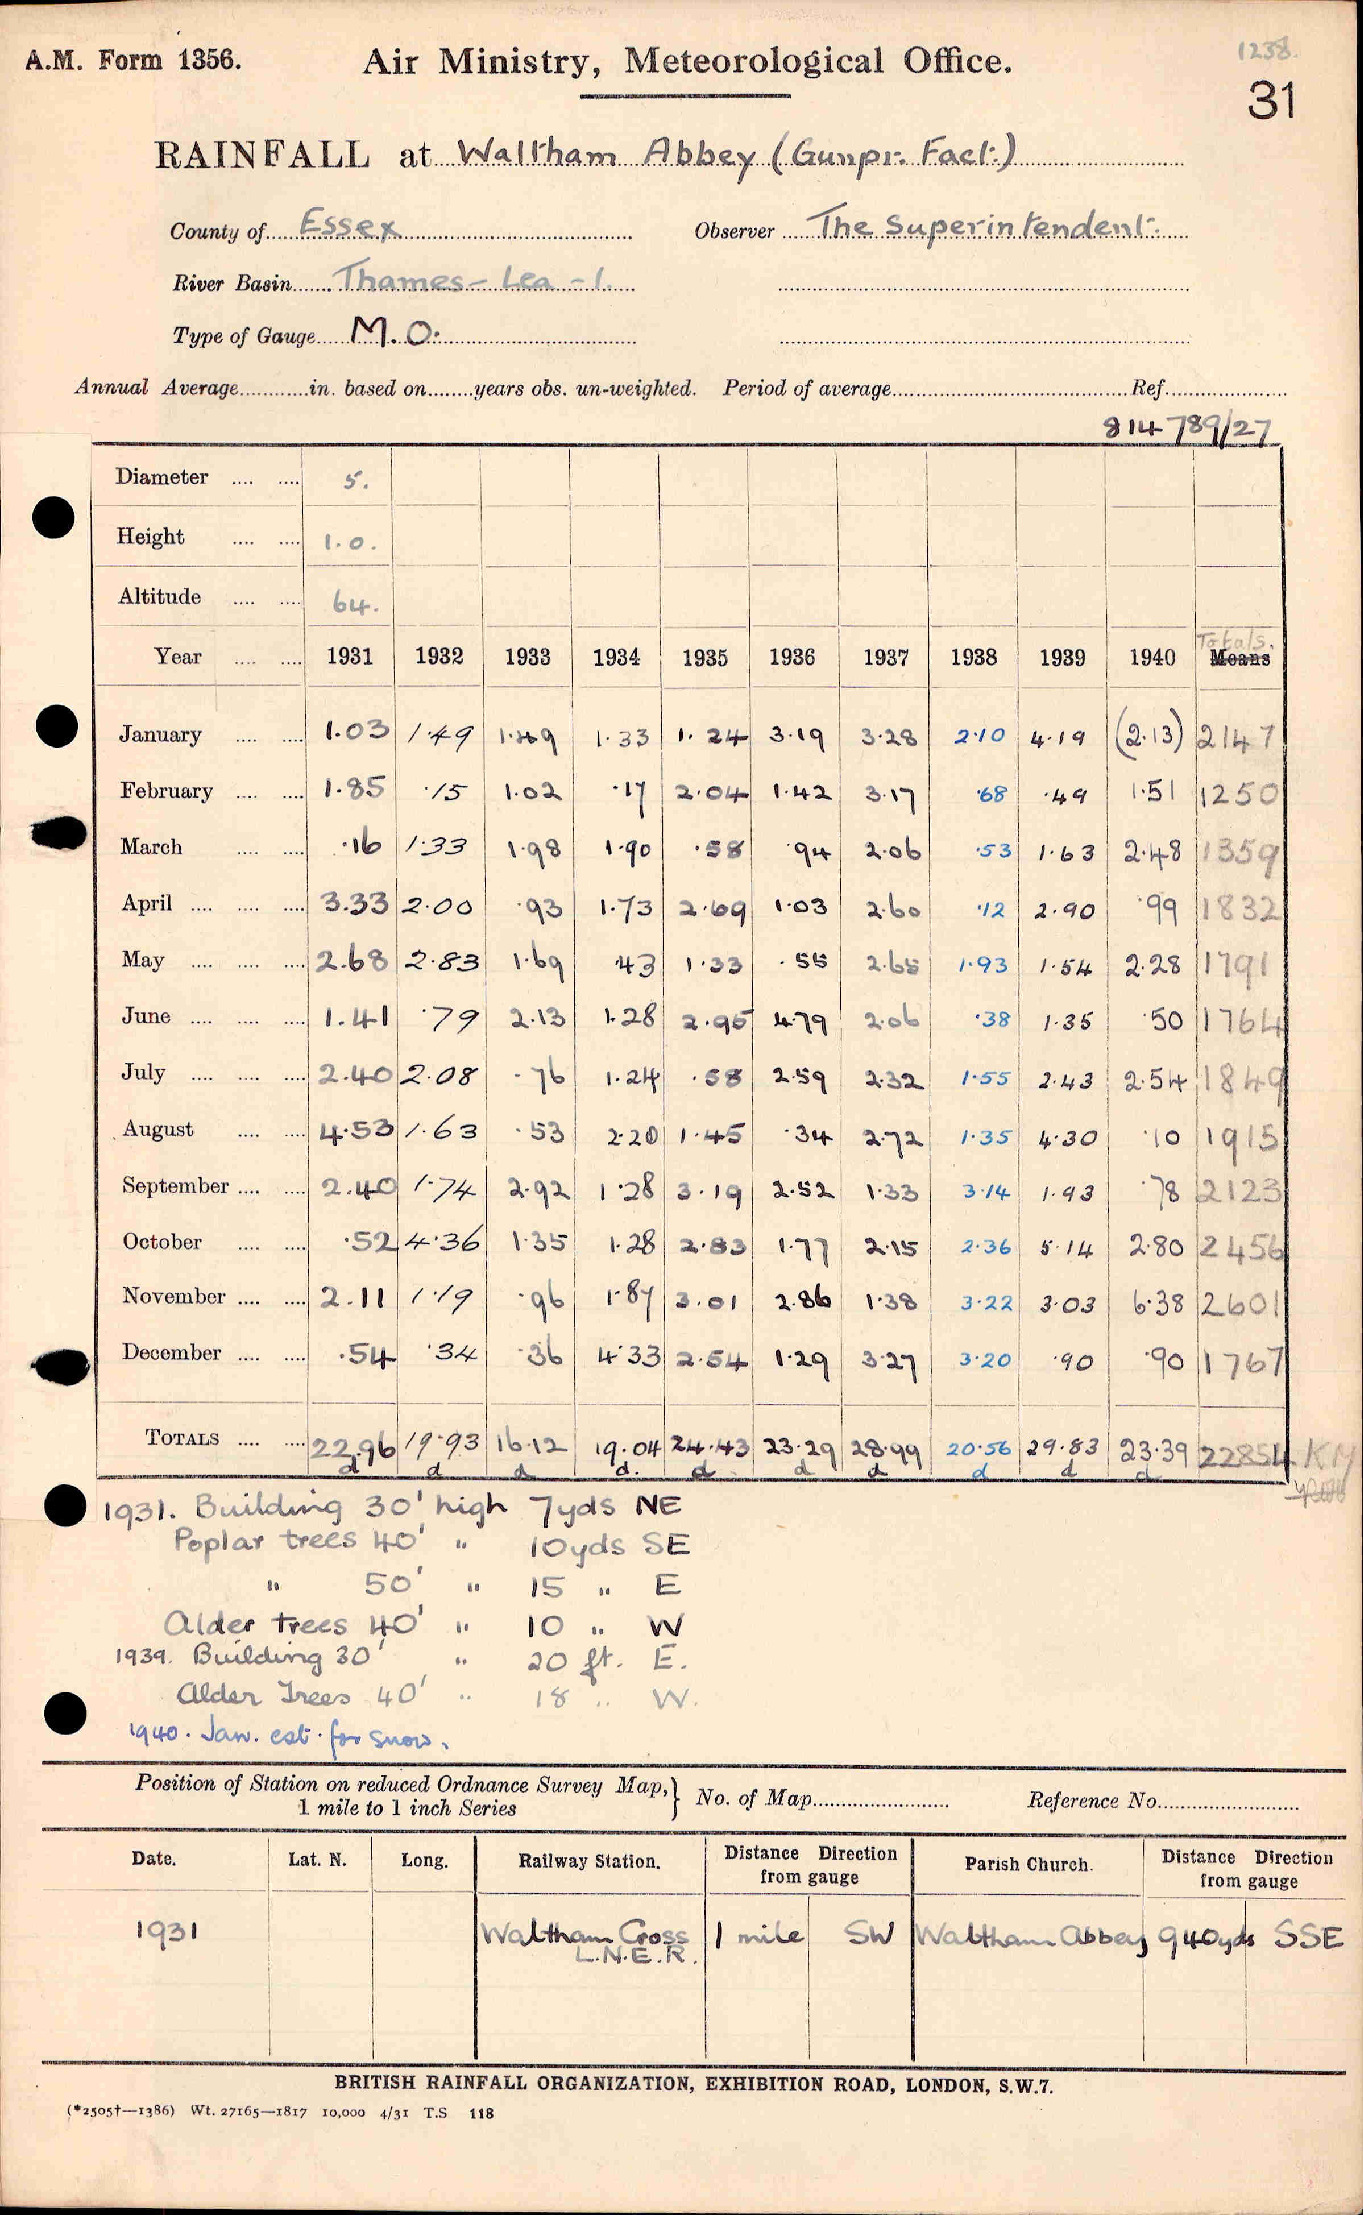 A.M. Form 1356.
Air Ministry, Meteorological Office.
1238.
31
RAINFALL at Waltham Abbey (Gunpr. Fact.)
County of Essex Observer The Superintendent.
River Basin Thames - Lea - 1.
Type of Gauge M.O.
Annual Average in. based on years obs. un-weighted. Period of average Ref.
814789/27
Diameter 5.
Height 1.0.
Altitude 64.
Totals.
Year 1931 1932 1933 1934 1935 1936 1937 1938 1939 1940 Means
January 1.03 1.49 1.49 1.33 1.24 3.19 3.28 2.10 4.19 (2.13) 2147
February 1.85 .15 1.02 .17 2.04 1.42 3.17 .68 .49 1.51 1250
March .16 1.33 1.98 1.90 .58 .94 2.06 .53 1.63 2.48 1359
April 3.33 2.00 .93 1.73 2.69 1.03 2.60 .12 2.90 .99 1832
May 2.68 2.83 1.69 .43 1.33 .55 2.65 1.93 1.54 2.28 1791
June 1.41 .79 2.13 1.28 2.95 4.79 2.06 .38 1.35 .50 1764
July 2.40 2.08 .76 1.24 .58 2.59 2.32 1.55 2.43 2.54 1849
August 4.53 1.63 .53 2.20 1.45 .34 2.72 1.35 4.30 .10 1915
September 2.40 1.74 2.92 1.28 3.19 2.52 1.33 3.14 1.93 .78 2123
October .52 4.36 1.35 1.28 2.83 1.77 2.15 2.36 5.14 2.80 2456
November 2.11 1.19 .96 1.87 3.01 2.86 1.38 3.22 3.03 6.38 2601
December .54 .34 .36 4.33 2.54 1.29 3.27 3.20 .90 .90 1767
TOTALS 22.96 19.93 16.12 19.04 24.43 23.29 28.99 20.56 29.83 23.39 22854 KM
d d d d. d d d d d d
1931. Building 30' high 7yds NE
Poplar trees 40' " 10yds SE
" 50' " 15 " E
Alder trees 40' " 10 " W
1939. Building 30' " 20 ft. E.
Alder Trees 40' " 18 " W.
1940. Jan. est. for snow.
Position of Station on reduced Ordnance Survey Map, 1 mile to 1 inch Series } No. of Map Reference No.
Date. Lat. N. Long. Railway Station. Distance Direction from gauge Parish Church. Distance Direction from gauge
1931 Waltham Cross L.N.E.R. 1 mile SW Waltham Abbey 940yds SSE
BRITISH RAINFALL ORGANIZATION, EXHIBITION ROAD, LONDON, S.W.7.
(*2505†—1386) Wt. 27165—1817 10,000 4/31 T.S 118